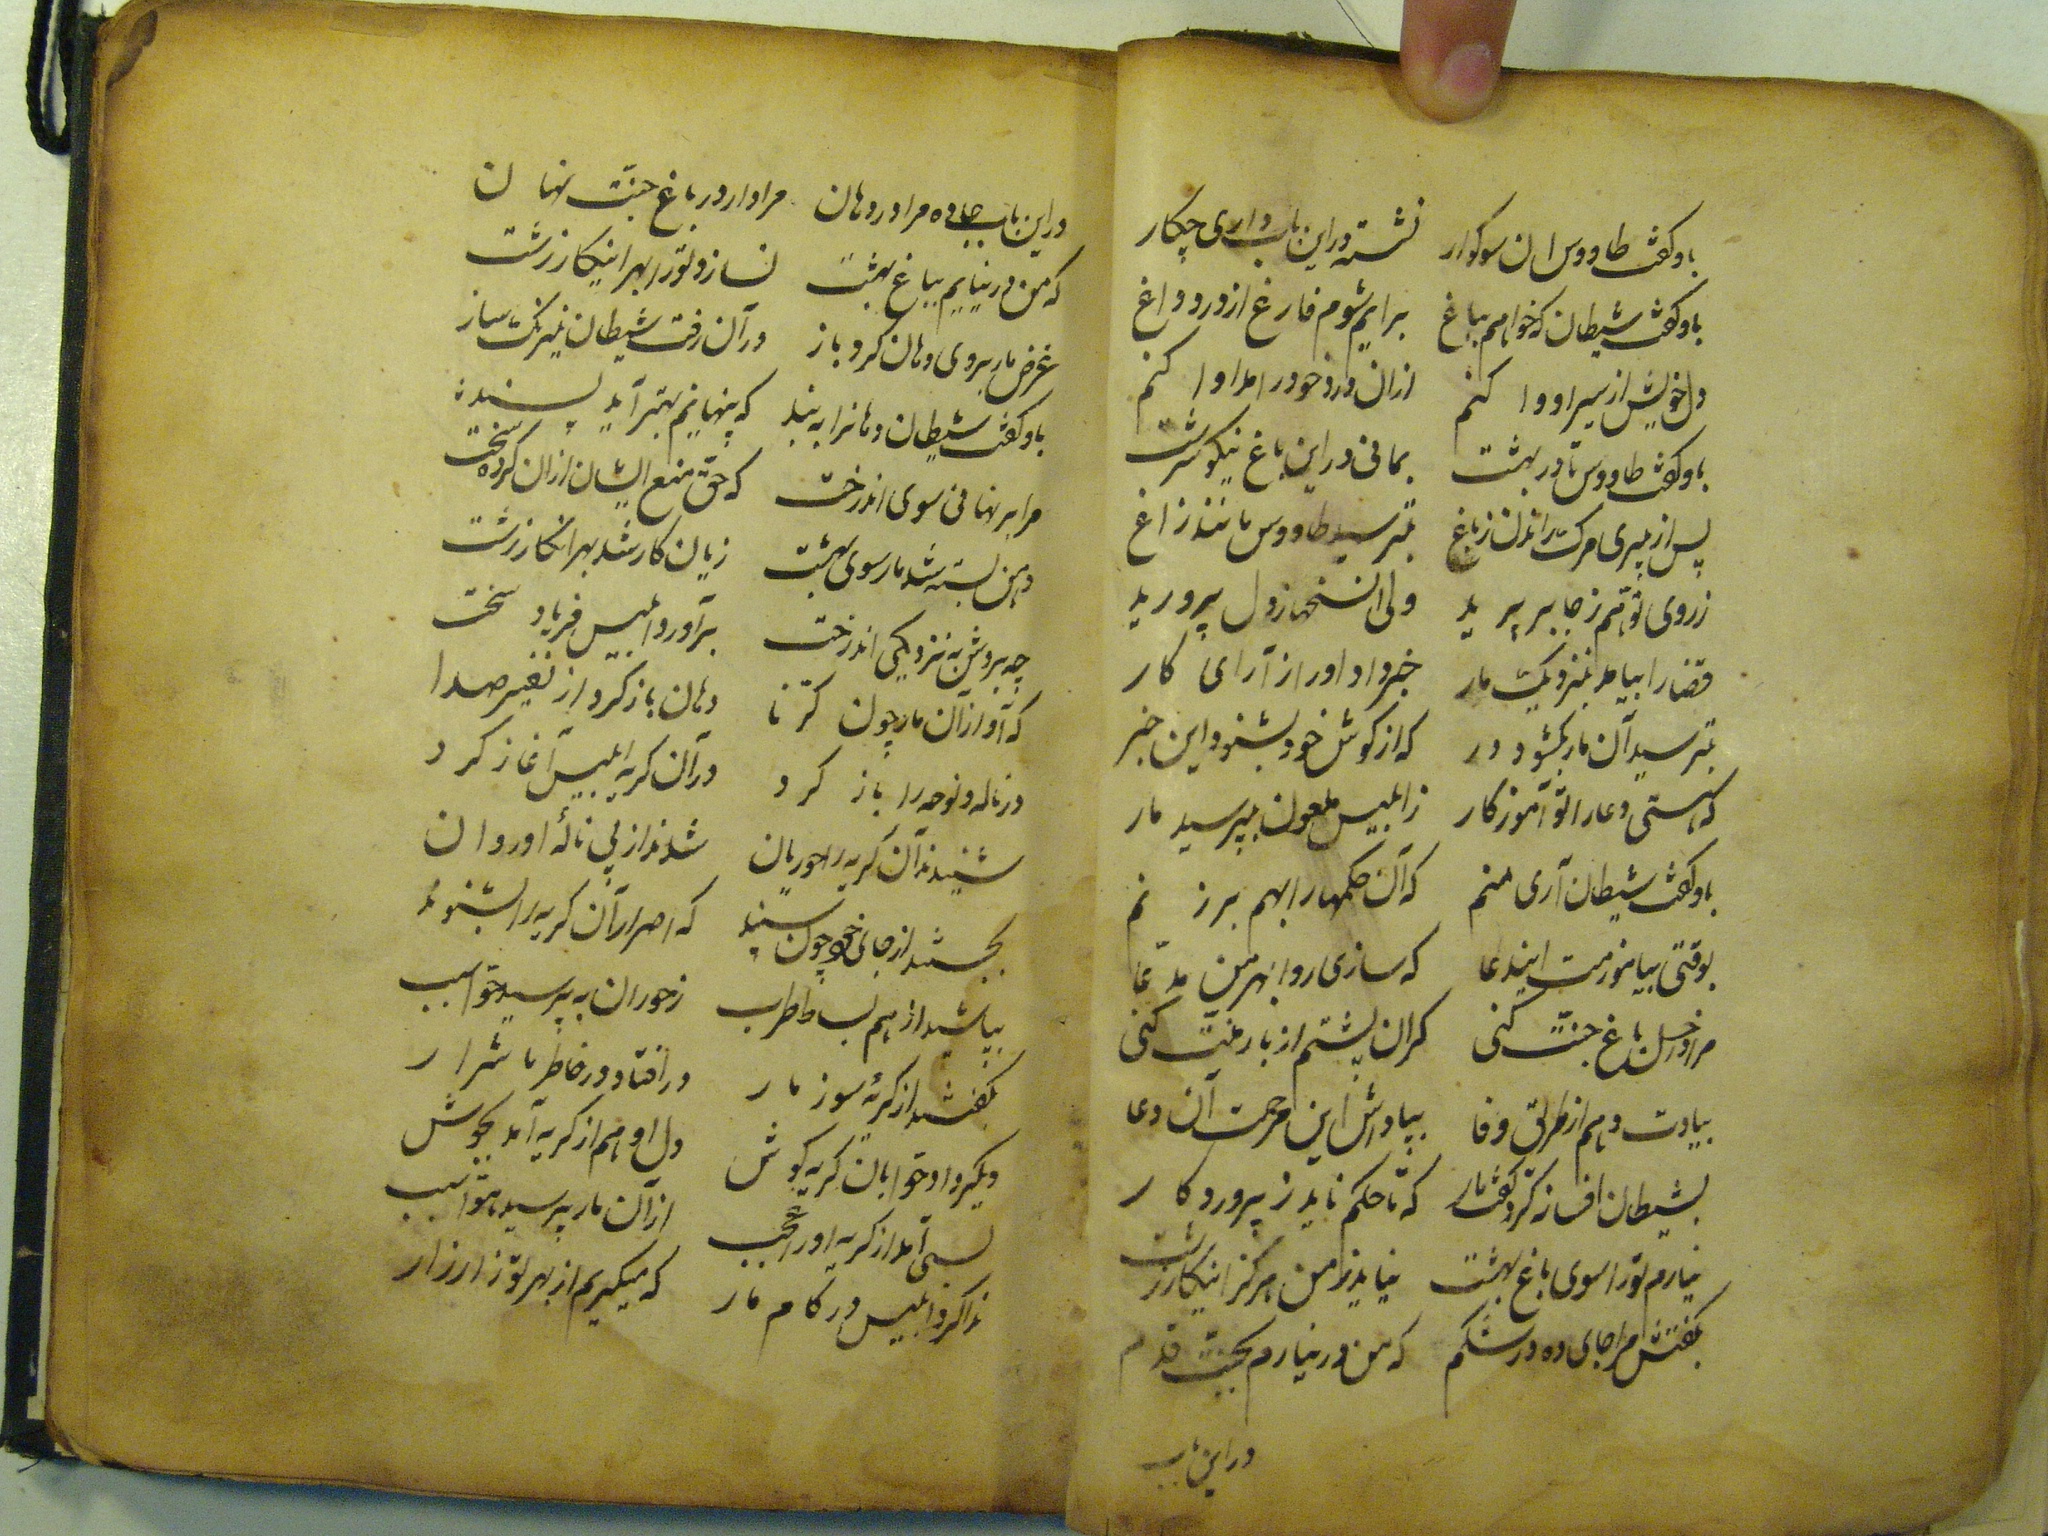 باو گفت طاووس ان سوکوار نشسته در این باب داری چکار
باو گفت شیطان که خواهم بباغ برایم شوم فارغ از درد و داغ
دل خویش از سیر او وا کنم ازان درد خود را مداوا کنم
باو گفت طاووس تا در بهشت بمانی در این باغ نیکو سرشت
پس از پیری مرکت راندن ز باغ بترسید طاووس مانند زاغ
ز روی توهم ز جا بر پرید ولی ان سخنها ز دل پرورید
قضا را بیامد بنزدیک مار خبر داد او را از آرای کار
بترسید آن مار بکشود در که از کوش خود بشنود این خبر
که هستی دعا را تو آموزکار ز ابلیس ملعون بپرسید مار
باو گفت شیطان آری منم که آن حکمها را بهم بر زنم
بوقتی بیاموزمت ایندعا که سازی روا بهر من مدعا
مرا داخل باغ جنت کنی کران پشتم از بار منت کنی
بیادت دهم از طریق وفا بپاداش این مرحمت آن دعا
بشیطان افسانه کر گفت مار که تا حکم ناید ز پروردکار
نیارم تو را سوی باغ بهشت نیاید ز من هرکز اینکار زشت
بگفتش مرا جای ده در شکم که من در نیارم بجنت قدم
در این باب
در این باب جا ده مرا در دهان مرا وارد در باغ جنت نهان
که من در نیایم بباغ بهشت نسازد تو را بهر اینکار زشت
غرض مار بر وی دهان کرد باز در آن رفت شیطان نیرنک ساز
باو گفت شیطان دهانرا به بند که پنهانیم بهتر آید پسند
مرا بر نهانی سوی اندرخت که حق منع ایشان ازان کرده سخت
دهن بسته شد مار سوی بهشت زیان کار شد بهر انکار زشت
چه بردش به نزدیکی اندرخت برآورد ابلیس فریاد سخت
که آواز آن مار چون کرنا دهان باز کرد از نفیر صدا
در ناله و نوحه را باز کرد در آن کریه ابلیس آغاز کرد
شنیدند آن کریه را حوریان شدند از پی نالهٔ او روان
بجستند از جای خود چون سپند که اصرار آن کریه را بشنوند
بپاشید از هم بساط طرب ز حوران به پرسید حوا سبب
بگفتند از کریهٔ سوز مار در افتاد در خاطر ما شرار
دیکر داد حوا بان کریه کوش دل او هم از کریه آمد بجوش
بسی آمد از کریه او را عجب از آن مار پرسید حوا سبب
ندا کرد ابلیس در کام مار که میکریم از بهر تو زار زار